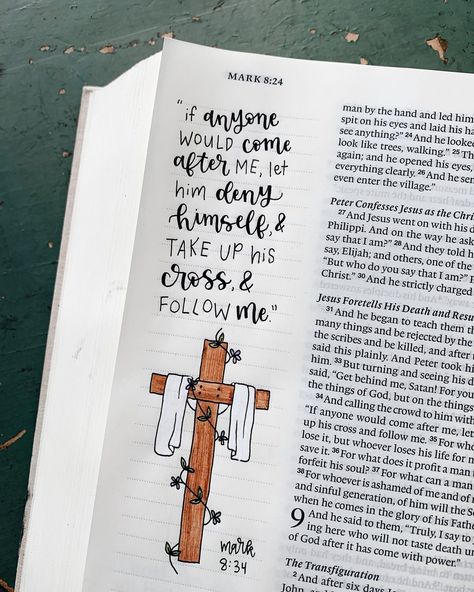 MARK 8:24
"if anyone
WOULD come
after ME, let
him deny
himself, &
TAKE UP his
cross, &
FOLLOW me."
mark
8:34
man by the hand and led him
spit on his eyes and laid his ha
see anything?" 24 And he looked
look like trees, walking." 25 Th
again; and he opened his eyes,
everything clearly. 26 And he sen
even enter the village."
Peter Confesses Jesus as the Chris
27 And Jesus went on with his d
Philippi. And on the way he ask
say that I am?" 28 And they told h
say, Elijah; and others, one of the
"But who do you say that I am?" P
Christ." 30 And he strictly charged
Jesus Foretells His Death and Resu
31 And he began to teach them th
many things and be rejected by the
the scribes and be killed, and after
said this plainly. And Peter took hi
him. 33 But turning and seeing his d
said, "Get behind me, Satan! For you
the things of God, but on the things
34 And calling the crowd to him with
"If anyone would come after me, let
up his cross and follow me. 35 For who
lose it, but whoever loses his life for m
save it. 36 For what does it profit a man
forfeit his soul? 37 For what can a man
38 For whoever is ashamed of me and of n
and sinful generation, of him will the
when he comes in the glory of his Fath
9 And he said to them, "Truly, I say to
ing here who will not taste death u
of God after it has come with power."
The Transfiguration
2 And after six days Je
John, and